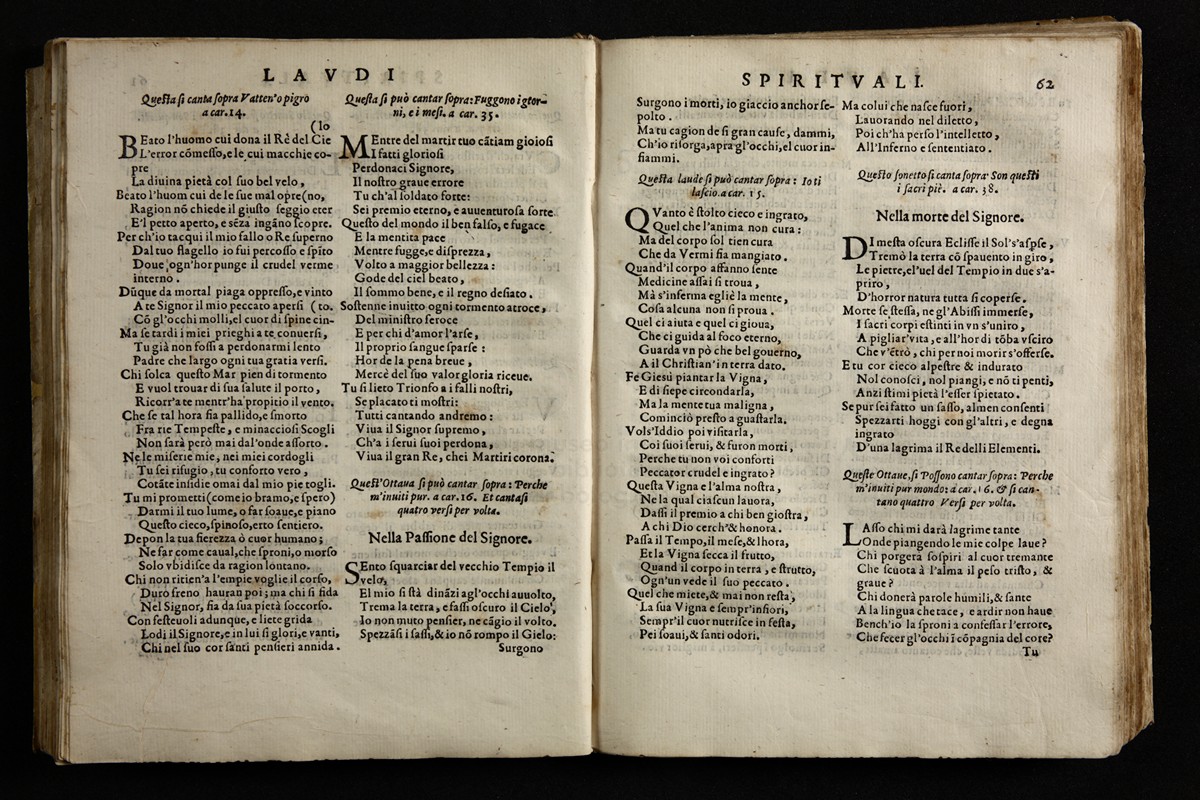 LAVDI
Questa si canta sopra Vatten'o pigro
a car. 14.
(lo
BEato l'huomo cui dona il Rè del Cie
L'error cōmesso, e le cui macchie co-
pre
La diuina pietà col suo bel velo,
Beato l'huom cui de le sue mal opre (no,
Ragion nō chiede il giusto seggio eter
E'l petto aperto, e sēza ingāno scopre.
Per ch'io tacqui il mio fallo o Re superno
Dal tuo flagello io fui percosso e spīto
Doue ogn'hor punge il crudel verme
interno.
Dūque da mortal piaga oppresso, e vinto
A te Signor il mio peccato apersi (to.
Cō gl'occhi molli, e l cuor di spine cin-
Ma se tardi i miei prieghi a te conuersi,
Tu già non fossi a perdonarmi lento
Padre che largo ogni tua gratia versi.
Chi solca questo Mar pien di tormento
E vuol trouar di sua salute il porto,
Ricorr'a te mentr'ha propitio il vento.
Che se tal hora fia pallido, e smorto
Fra rie Tempeste, e minacciosi Scogli
Non sarà però mai dal'onde assorto.
Ne le miserie mie, nei miei cordogli
Tu sei rifugio, tu conforto vero,
Cotāte insidie omai dal mio pie togli.
Tu mi prometti (come io bramo, e spero)
Darmi il tuo lume, o far soaue, e piano
Questo cieco, spinoso, erto sentiero.
Depon la tua fierezza ò cuor humano;
Ne far come caual, che sproni, o morso
Solo vbidisce da ragion lontano.
Chi non ritien'a l'empie voglie il corso,
Duro freno hauran poi; ma chi si fida
Nel Signor, fia da sua pietà soccorso.
Con festeuoli adunque, e liete grida
Lodi il Signore, e in lui si glori, e vanti,
Chi nel suo cor santi pensieri annida.
Questa si può cantar sopra: Fuggono i gior-
ni, e i mesi. a car. 35.
MEntre del martir tuo cātiam gioiosi
I fatti gloriosi
Perdonaci Signore,
Il nostro graue errore
Tu ch'al soldato forte:
Sei premio eterno, e auuenturosa sorte
Questo del mondo il ben falso, e fugace
E la mentita pace
Mentre fugge, e disprezza,
Volto a maggior bellezza:
Gode del ciel beato,
Il sommo bene, e il regno desiato.
Sostenne inuitto ogni tormento atroce,
Del ministro feroce
E per chi d'amor l'arse,
Il proprio sangue sparse:
Hor de la pena breue,
Mercè del suo valor gloria riceue.
Tu si lieto Trionfo a i falli nostri,
Se placato ti mostri:
Tutti cantando andremo:
Viua il Signor supremo,
Ch'a i serui suoi perdona,
Viua il gran Re, chei Martiri corona.
Quest'Ottaua si può cantar sopra: Perche
m'inuiti pur. a car. 16. Et cantasi
quatro versi per volta.
Nella Passione del Signore.
SEnto squarciar del vecchio Tempio il
velo,
El mio si stà dināzi agl'occhi auuolto,
Trema la terra, e fassi oscuro il Cielo,
Io non muto pensier, ne cāgio il volto.
Spezzāsi i sassi, & io nō rompo il Gielo:
Surgono
SPIRITVALI.
62
Surgono i morti, io giaccio anchor se-
polto.
Ma tu cagion de si gran cause, dammi,
Ch'io risorga, apra gl'occhi, el cuor in-
fiammi.
Questa laude si può cantar sopra: Io ti
lascio. a car. 15.
QVanto è stolto cieco e ingrato,
Quel che l'anima non cura:
Ma del corpo sol tien cura
Che da Vermi fia mangiato.
Quand'il corpo affanno sente
Medicine assai si troua,
Mà s'inferma egliè la mente,
Cosa alcuna non si proua.
Quel ci aiuta e quel ci gioua,
Che ci guida al foco eterno,
Guarda vn pò che bel gouerno,
A il Christian' in terra dato.
Fe Giesù piantar la Vigna,
E di siepe circondarla,
Ma la mente tua maligna,
Cominciò presto a guastarla.
Vols'Iddio poi visitarla,
Coi suoi serui, & furon morti,
Perche tu non voi conforti
Peccator crudel e ingrato?
Questa Vigna e l'alma nostra,
Ne la qual ciascun lauora,
Dassi il premio a chi ben giostra,
A chi Dio cerch'& honora.
Passa il Tempo, il mese, & lhora,
Et la Vigna secca il frutto,
Quand il corpo in terra, e strutto,
Ogn'un vede il suo peccato.
Quel che miete, & mai non resta,
La sua Vigna e sempr'insiori,
Sempr'il cuor nutrisce in festa,
Pei soaui, & santi odori.
Ma colui che nasce fuori,
Lauorando nel diletto,
Poi ch'ha perso l'intelletto,
All'Inferno e sententiato.
Questo sonetto si canta sopra: Son questi
i sacri piè. a car. 38.
Nella morte del Signore.
DI mesta oscura Eclisse il Sol's'aspse,
Tremò la terra cō spauento in giro,
Le pietre, el'uel del Tempio in due s'a-
priro,
D'horror natura tutta si coperse.
Morte se stessa, ne gl'Abissi immerse,
I sacri corpi estinti in vn s'uniro,
A pigliar'vita, e all'hor di tōba vsciro
Che v'ētrò, chi per noi morir s'offerse.
E tu cor cieco alpestre & indurato
Nol conosci, nol piangi, e nō ti penti,
Anzi stimi pietà l'esser spietato.
Se pur sei fatto un sasso, almen consenti
Spezzarti hoggi con gl'altri, e degna
ingrato
D'una lagrima il Re delli Elementi.
Queste Ottaue, si Possono cantar sopra: Perche
m'inuiti pur mondo: à car. 16. & si can-
tano quattro Versi per volta.
LAsso chi mi darà lagrime tante
Onde piangendo le mie colpe laue?
Chi porgerà sospiri al cuor tremante
Che scuota à l'alma il peso tristo, &
graue?
Chi donerà parole humili, & sante
A la lingua che tace, e ardir non haue
Bench'io la sproni a confessar l'errore,
Che fecer gl'occhi ī cōpagnia del core?
Tu